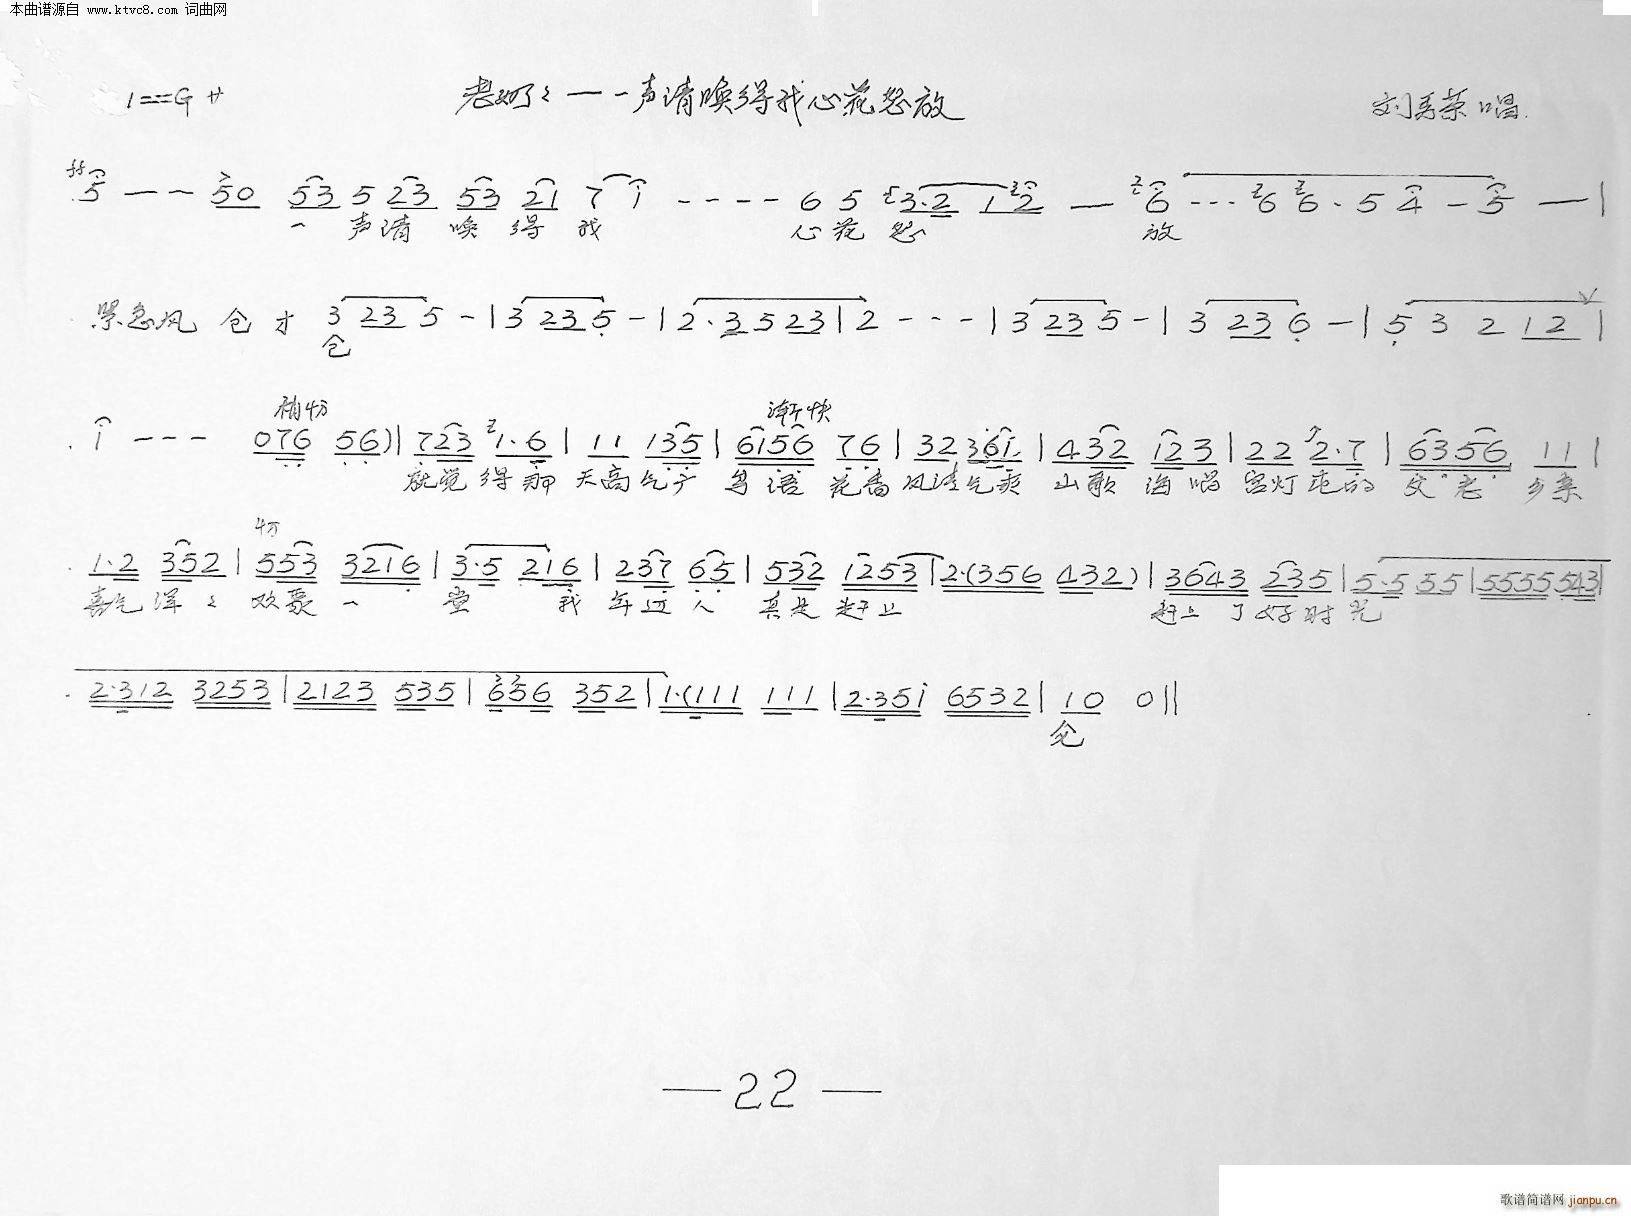 本曲谱源自 www.ktvc8.com 词曲网
1==G 廾 老奶々 — 一声请唤得我心花怒放 唱.
5 — — 50 53 5 23 53 21 7 i - - - - 6 5 3·2 1 2 — 6 - - - 6 6 · 5 4 — 5 — |
一 声请 唤 得 我 心花 怒 放
紧急风 仓 才 3 23 5 - | 3 23 5 - | 2·3 5 23 | 2 - - - | 3 23 5 - | 3 23 6 - | 5 3 2 12 |
仓
稍切 渐快
i - - - 076 56) | 723 1·6 | 11 135 | 6156 76 | 32 36i | 432 123 | 22 2·7 | 6356 11 |
就觉 得那 天高气 鸟语 花香 风清气爽 山歌 海唱 宫灯 的 父老 乡亲
切
1·2 352 | 553 3216 | 3·5 216 | 237 65 | 532 1253 | 2·(356 432) | 3643 235 | 5·5 55 | 5555 543 |
喜气洋々 欢聚 一 堂 我 年迈人 真是 赶上 赶上 了好时光
2·312 3253 | 2123 535 | 656 352 | 1·(111 111 | 2·35i 6532 | 10 0 ||
仓
— 22 —
歌谱简谱网 jianpu.cn